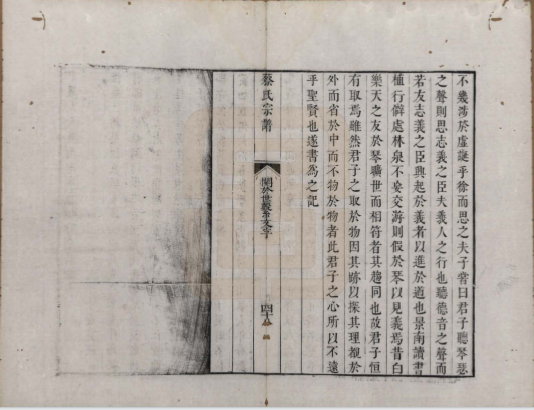 不幾涉於虛誕乎徐而思之夫子嘗曰君子聽琴瑟
之聲則思志義之臣夫義人之行也聽德音之聲而
若友志義之臣興起於義者以進於道也景南讀書
植行僻處林泉不妄交游則假於琴以見義焉昔白
樂天之友於琴曠世而相符者其趨同也故君子恒
有取焉雖然君子之取於物因其跡以探其理觀於
外而省於中而不物於物者此君子之心所以不遠
乎聖賢也遂書為之記
蔡氏宗譜